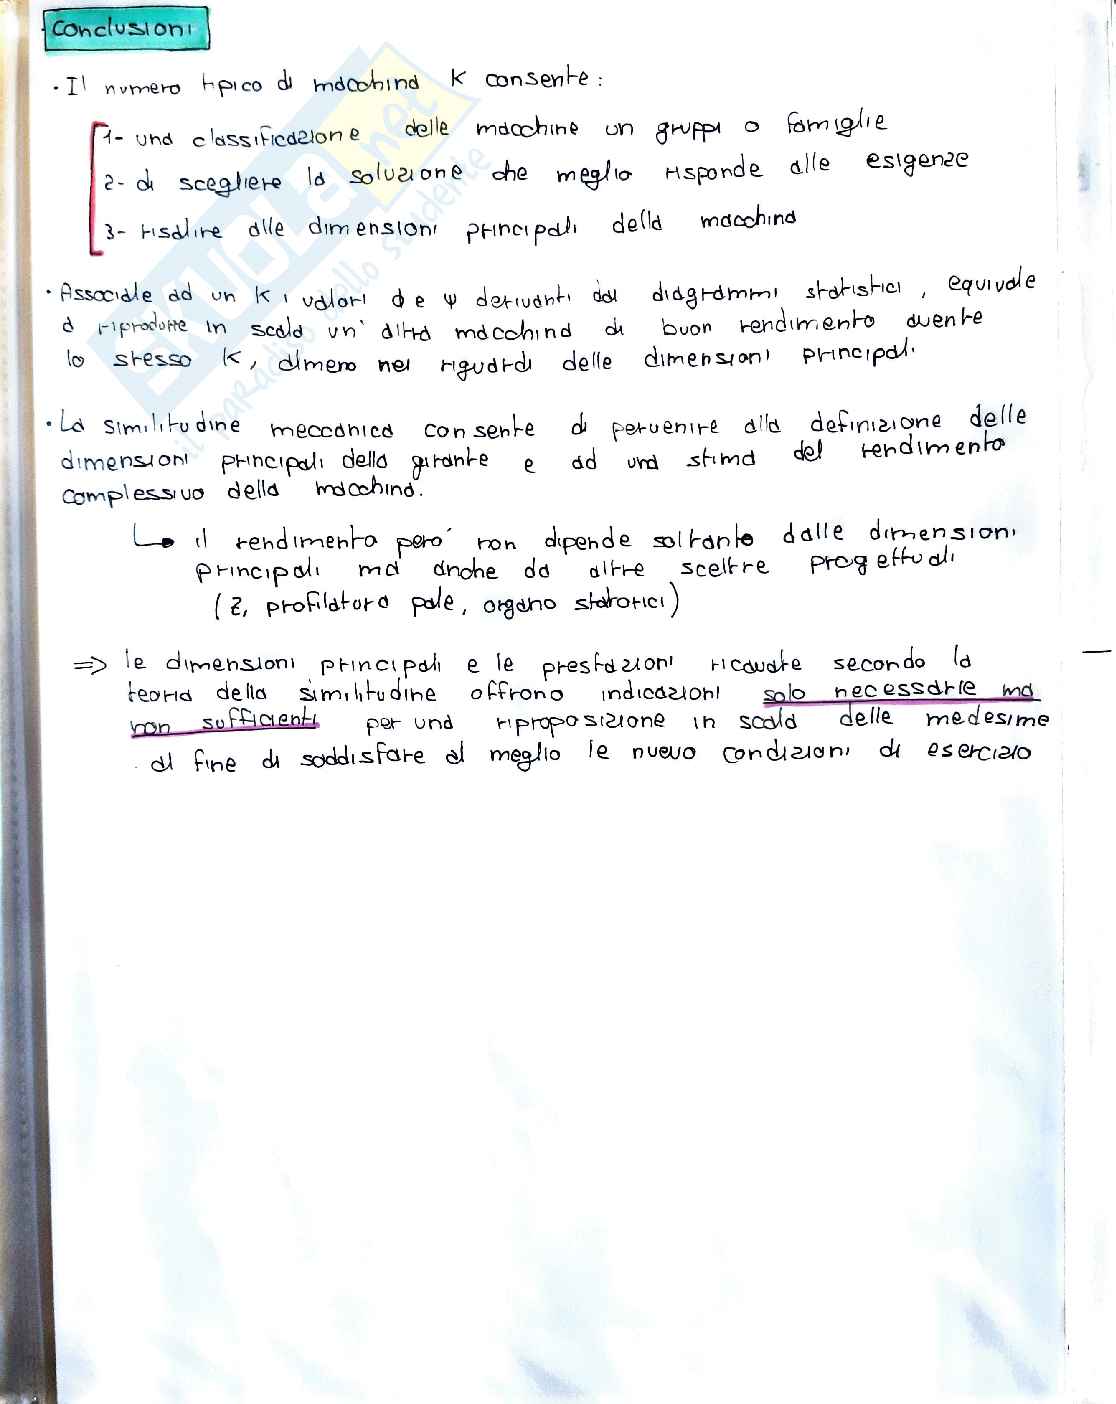 Conclusioni
· Il numero tipico di macchina K consente:
1- una classificazione delle macchine un gruppi o famiglie
2- di scegliere la soluzione che meglio risponde alle esigenze
3- risalire alle dimensioni principali della macchina
· Associale ad un K i valori ϕ e ψ derivanti dai diagrammi statistici, equivale
a riprodurre in scala un' altra macchina di buon rendimento avente
lo stesso K, almeno nei riguardi delle dimensioni principali.
· La similitudine meccanica consente di pervenire alla definizione delle
dimensioni principali della girante e ad una stima del rendimento
complessivo della macchina.
↳ il rendimento però non dipende soltanto dalle dimensioni
principali ma anche da altre sceltre progettuali
(Z, profilatura pale, organo statorici)
=> le dimensioni principali e le prestazioni ricavate secondo la
teoria della similitudine offrono indicazioni solo necessarie ma
non sufficienti per una riproposizione in scala delle medesime
al fine di soddisfare al meglio le nuevo condizioni di esercizio
SKUOLA.net
il paradiso dello studente